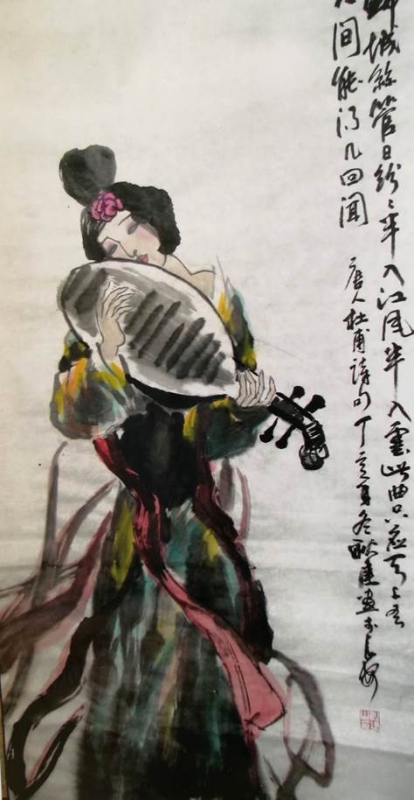 錦城絲管日紛々半入江风半入雲此曲只應天上有
人間能得几回聞
唐人杜甫詩句丁亥